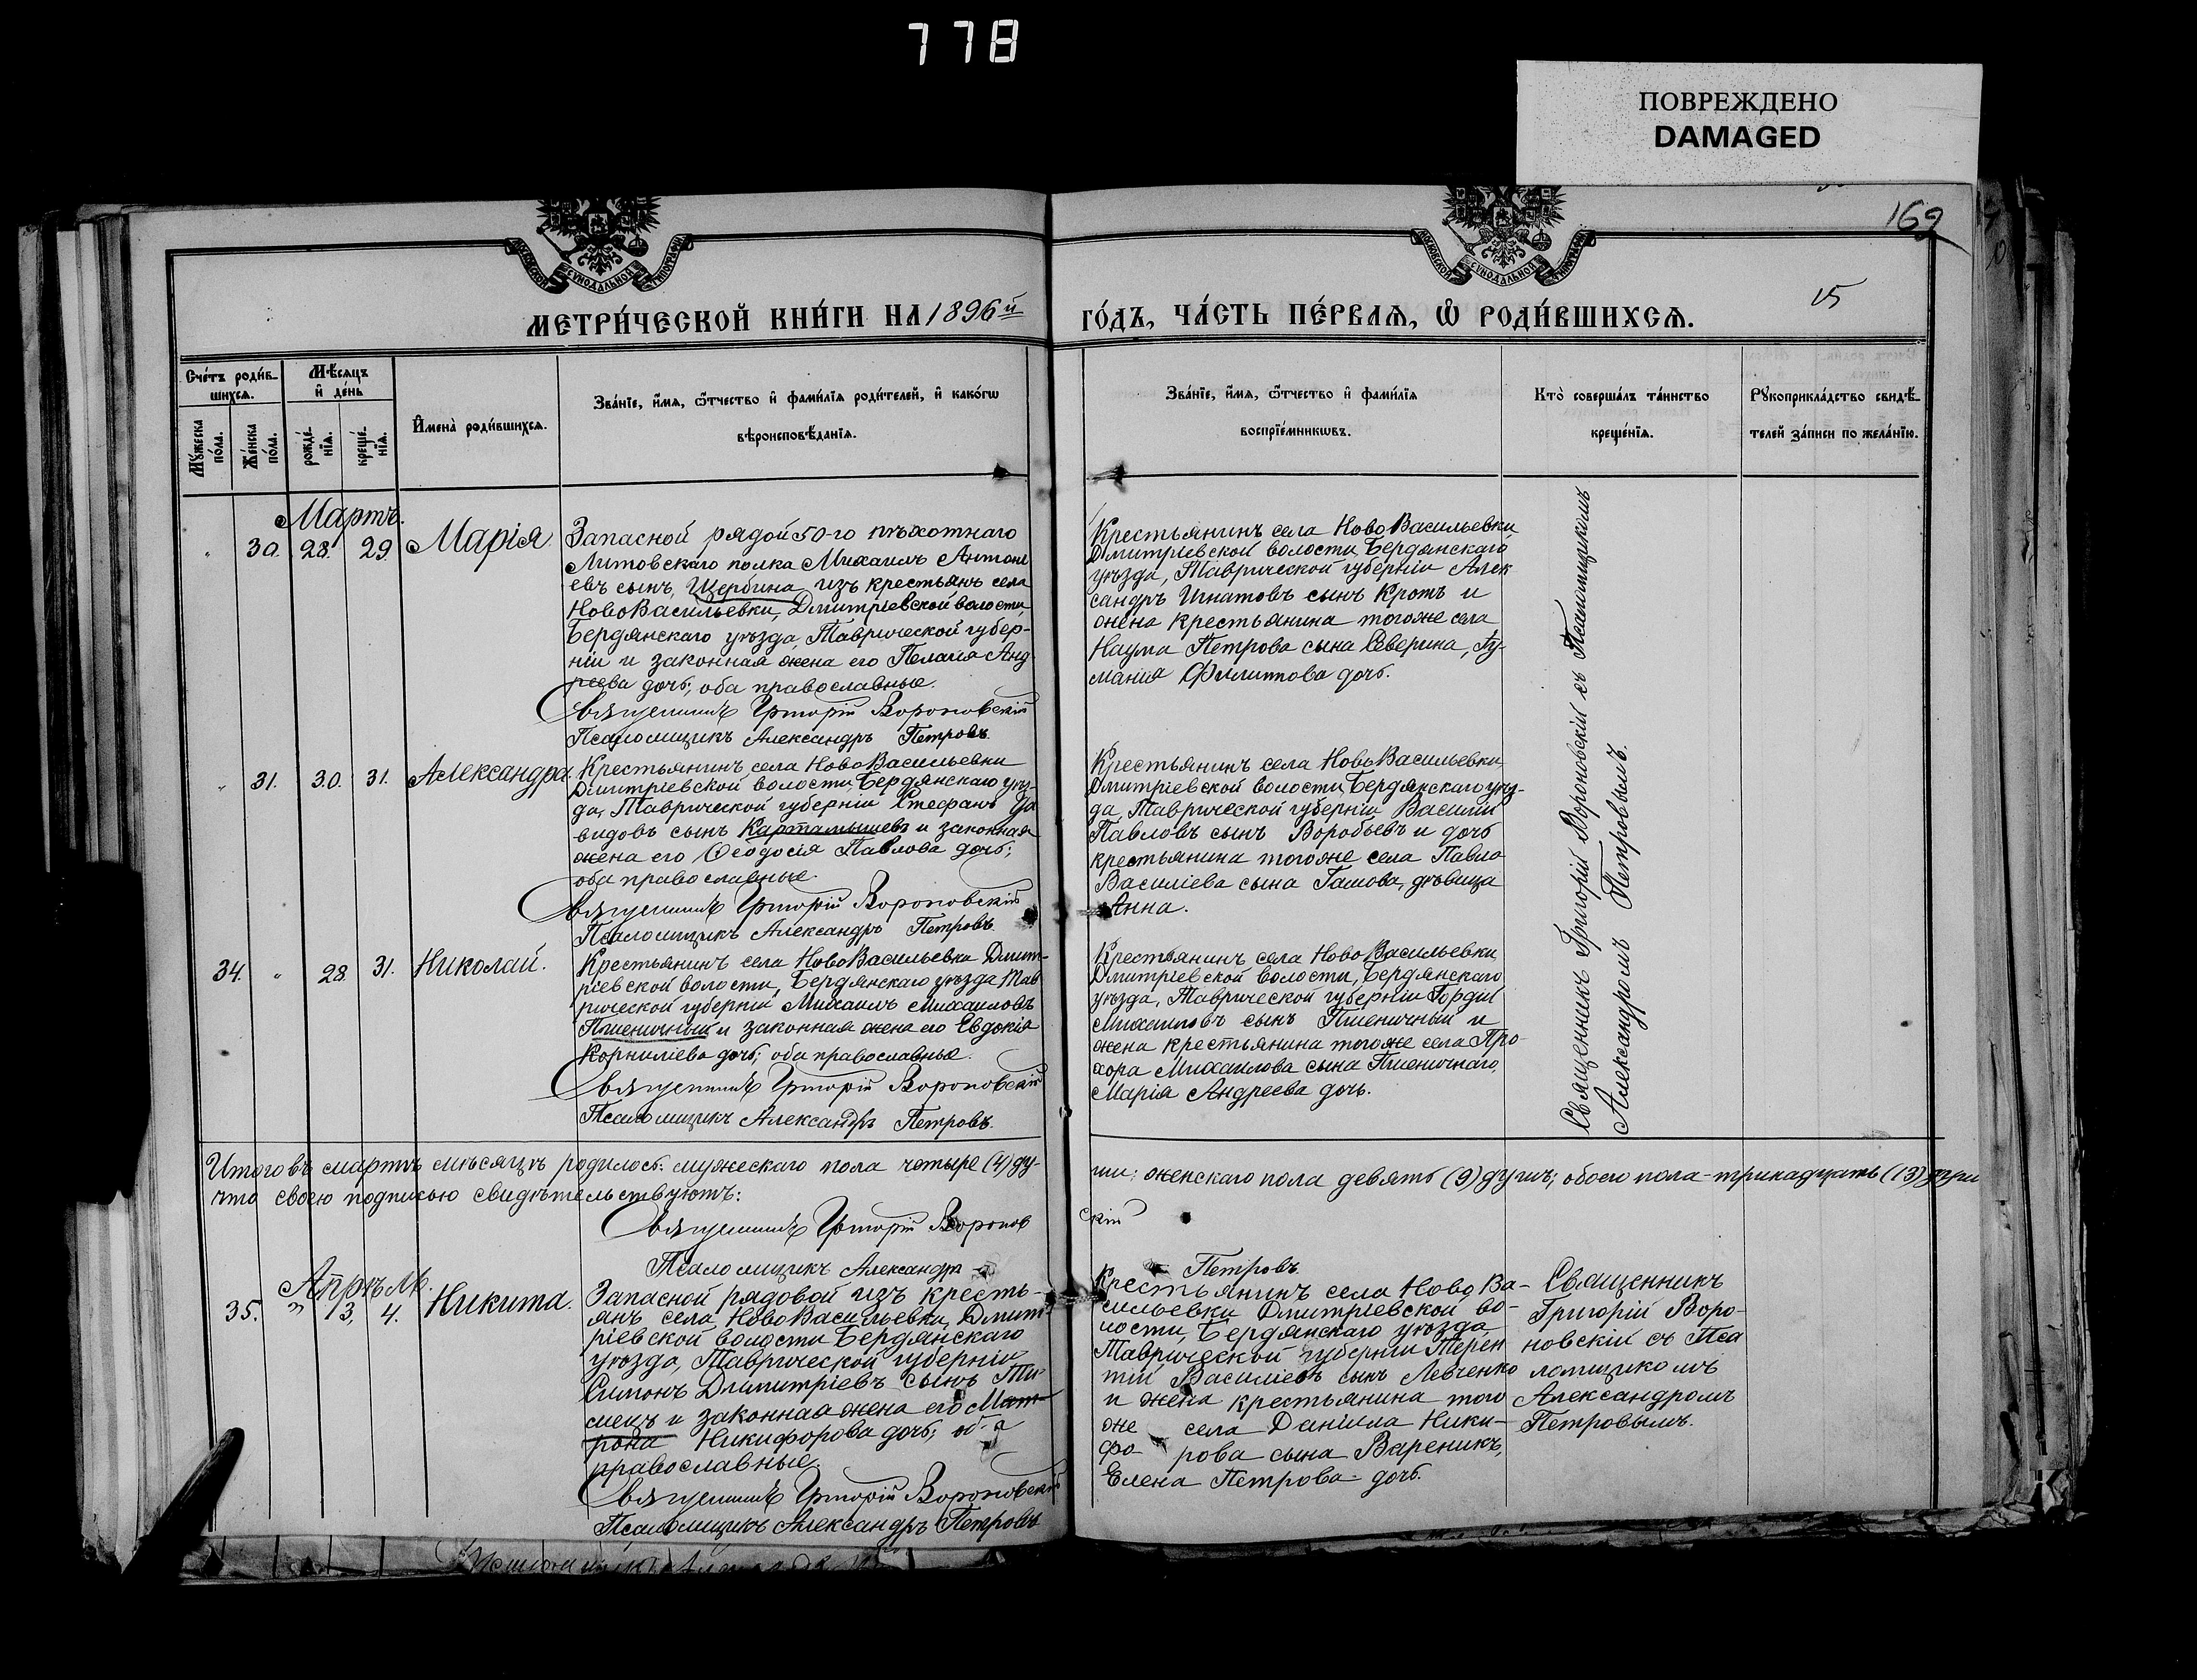 778
ПОВРЕЖДЕНО
DAMAGED
169
15
МОСКОВСКОЙ СѴНОДАЛЬНОЙ ТИПОГРАФІИ
МОСКОВСКОЙ СѴНОДАЛЬНОЙ ТИПОГРАФІИ
МЕТРИ́ЧЕСКОЙ КНИ́ГИ НА 1896й
ГО́ДЪ, ЧА́СТЬ ПЕ́РВАЯ, Ѡ РОДИ́ВШИХСЯ.
Сче́тъ роди́в-
шихся.
Мѣ́сяцъ
и҆ де́нь
Мꙋ́жеска
по́ла.
Же́нска
по́ла.
рожде́-
нїя.
креще́-
нїя.
И҆мена̀ роди́вшихся.
Зва́нїе, и҆́мя, ѻ҆́тчество и҆ фами́лїя роди́телей, и҆ како́гѡ
вѣроисповѣ́данїя.
Зва́нїе, и҆́мя, ѻ҆́тчество и҆ фами́лїя
воспрїе́мникѡвъ.
Кто̀ соверша́лъ та́инство
креще́нїя.
Рꙋкоприкла́дство свидѣ́-
телей за́писи по жела́нїю.
Мартъ.
" 30. 28. 29. Марія.
Запасной рядой 50-го пѣхотнаго
Литовскаго полка Михаилъ Антонi
евъ сынъ, Щербина изъ крестьянъ села
НовоВасильевки, Дмитріевской волости,
Бердянскаго уѣзда, Таврической губер-
ніи и законная жена его Пелагія Анд
реева дочь; оба православные.
Священникъ Григорій Вороновскій
Псаломщикъ Александръ Петровъ.
Крестьянинъ села НовоВасильевки,
Дмитріевской волости, Бердянскаго
уѣзда, Таврической губерніи Алек
сандръ Игнатовъ сынъ Кротъ и
жена крестьянина тогоже села
Наума Петрова сына Северина,
Филиппова дочь.
" 31. 30. 31. Александра.
Крестьянинъ села НовоВасильевки
Дмитріевской волости, Бердянскаго уѣз-
да, Таврической губерніи Стефанъ Да
видовъ сынъ Картамышевъ и законная
жена его Ѳеодосія Павлова дочь;
оба православные.
Священникъ Григорій Вороновскій
Псаломщикъ Александръ Петровъ.
Крестьянинъ села НовоВасильевки,
Дмитріевской волости, Бердянскаго уѣз-
да, Таврической губерніи Василій
Павловъ сынъ Воробьевъ и дочь
крестьянина тогоже села Павла
Василіева сына Гамова, дѣвица
Анна.
34. " 28. 31. Николай.
Крестьянинъ села НовоВасильевки Дмит-
ріевской волости, Бердянскаго уѣзда Тав
рической губерніи Михаилъ Михаиловъ
Пшеничный и законная жена его Евдокія
Корниліева дочь; оба православные.
Священникъ Григорій Вороновскій
Псаломщикъ Александръ Петровъ.
Крестьянинъ села НовоВасильевки,
Дмитріевской волости, Бердянскаго
уѣзда, Таврической губерніи Гордій
Михаиловъ сынъ Пшеничный и
жена крестьянина тогоже села Про-
хора Михаилова сына Пшеничнаго,
Марія Андреева дочь.
Священникъ Григорій Вороновскій съ Псаломщикомъ
Александромъ Петровымъ.
Итого въ мартѣ мѣсяцѣ родилось: мужескаго пола четыре (4) ду-
ши: женскаго пола девять (9) душъ; обоего пола - тринадцать (13) души
что своею подписью свидѣтельствуютъ:
Священникъ Григорій Воронов
скій
Псаломщикъ Александръ
Петровъ.
Апрѣль.
35. " 3, 4. Никита.
Запасной рядовой изъ кресть-
янъ села НовоВасильевки, Дмит-
ріевской волости Бердянскаго
уѣзда, Таврической губерніи
Симонъ Димитріевъ сынъ
и законная жена его Мат-
рона Никифорова дочь; оба
православные.
Священникъ Григорій Вороновскій
Псаломщикъ Александръ Петровъ
Крестьянинъ села НовоВа-
сильевки Дмитріевской во-
лости, Бердянскаго уѣзда
Таврической губерніи Терен
тій Василіевъ сынъ Левченко
и жена крестьянина того
же села Даніила Ники-
фо рова сына Вареникъ,
Елена Петрова дочь.
Священникъ
Григорій Воро-
новскій съ Пса
ломщикомъ
Александромъ
Петровымъ.